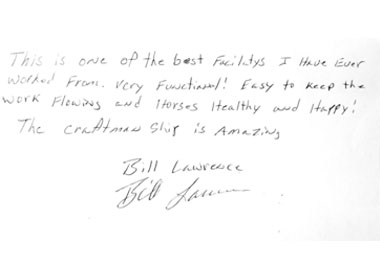 This is one of the best Facilitys I Have Ever
Worked From. Very Functional! Easy to Keep the
Work Flowing and Horses Healthy and Happy!
The craftman Ship is Amazing
Bill Lawrence
Bill